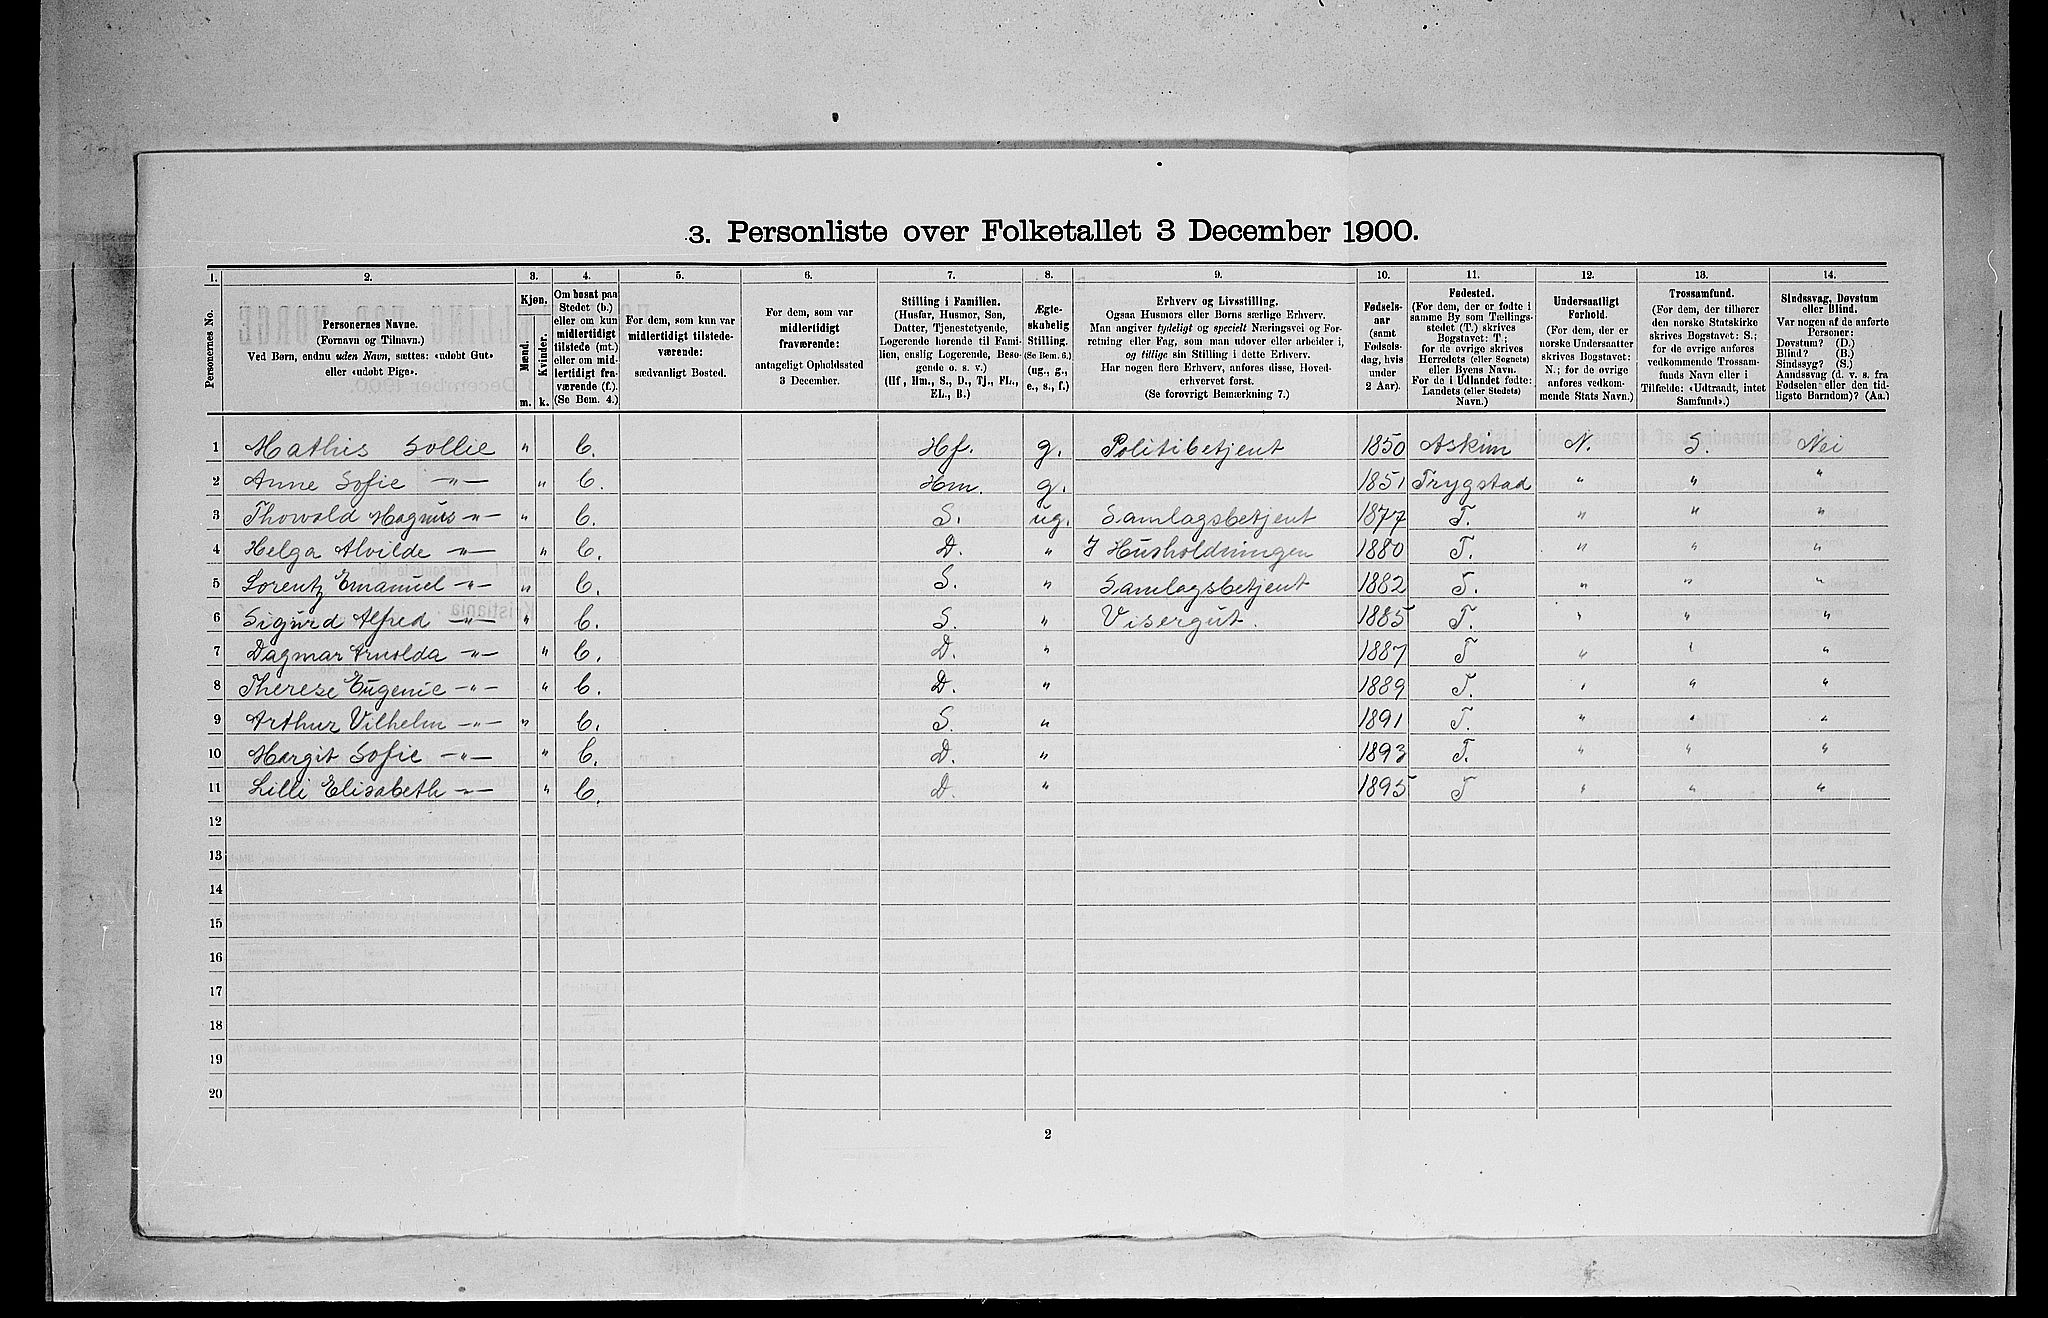 3. Personliste over Folketallet 3 December 1900.
1. 2. 3. 4. 5. 6. 7. 8. 9. 10. 11. 12. 13. 14.
Personernes No.
Personernes Navne.
(Fornavn og Tilnavn.)
Ved Børn, endnu uden Navn, sættes: «udøbt Gut»
eller «udøbt Pige».
Kjøn.
Mænd.
Kvinder.
m. k.
Om bosat paa
Stedet (b.)
eller om kun
midlertidigt
tilstede (mt.)
eller om mid-
lertidigt fra-
værende (f.).
(Se Bem. 4.)
For dem, som kun var
midlertidigt tilstede-
værende:
sædvanligt Bosted.
For dem, som var
midlertidigt
fraværende:
antageligt Opholdssted
3 December.
Stilling i Familien.
(Husfar, Husmor, Søn,
Datter, Tjenestetyende,
Logerende hørende til Fami-
lien, enslig Logerende, Besø-
gende o. s. v.)
(Hf, Hm., S., D., Tj., FL.,
EL., B.)
Ægte-
skabelig
Stilling.
(Se Bem. 6.)
(ug., g.,
e., s., f.)
Erhverv og Livsstilling.
Ogsaa Husmors eller Børns særlige Erhverv.
Man angiver tydeligt og specielt Næringsvei og For-
retning eller Fag, som man udøver eller arbeider i,
og tillige sin Stilling i dette Erhverv.
Har nogen flere Erhverv, anføres disse, Hoved-
erhvervet først.
(Se forøvrigt Bemærkning 7.)
Fødsels-
aar
(samt
Fødsels-
dag, hvis
under
2 Aar).
Fødested.
(For dem, der er fødte i
samme By som Tællings-
stedet (T.) skrives
Bogstavet: T;
for de øvrige skrives
Herredets (eller Sognets)
eller Byens Navn.
For de i Udlandet fødte:
Landets (eller Stedets)
Navn.)
Undersaatligt
Forhold.
(For dem, der er
norske Undersaatter
skrives Bogstavet:
N.; for de øvrige
anføres vedkom-
mende Stats Navn.)
Trossamfund.
(For dem, der tilhører
den norske Statskirke
skrives Bogstavet: S.;
for de øvrige anføres
vedkommende Trossam-
funds Navn eller i
Tilfælde: «Udtraadt, intet
Samfund».)
Sindssvag, Døvstum
eller Blind.
Var nogen af de anførte
Personer:
Døvstum? (D.)
Blind? (B.)
Sindssyg? (S.)
Aandssvag (d. v. s. fra
Fødselen eller den tid-
ligste Barndom)? (Aa.)
1 Mathis Sollie " b. Hf. g. Politibetjent 1850 Askim N. S. Nei
2 Anne Sofie —"— " b. Hm. g. 1851 Trygstad " " "
3 Thorvald Magnus —"— " b. S. ug. Samlagsbetjent 1877 T. " " "
4 Helga Alvilde —"— " b. D. " I Husholdningen 1880 T. " " "
5 Lorentz Emanuel —"— " b. S. " Samlagsbetjent 1882 T. " " "
6 Sigurd Alfred —"— " b. S. " Visergut. 1885 T. " " "
7 Dagmar Arnolda —"— " b. D. " 1887 T " " "
8 Therese Eugenie —"— " b. D. " 1889 T. " " "
9 Arthur Vilhelm —"— " b. S. " 1891 T. " " "
10 Margit Sofie —"— " b. D. " 1893 T. " " "
11 Lilli Elisabeth —"— " b. D. " 1895 T " " "
12
13
14
15
16
17
18
19
20
2